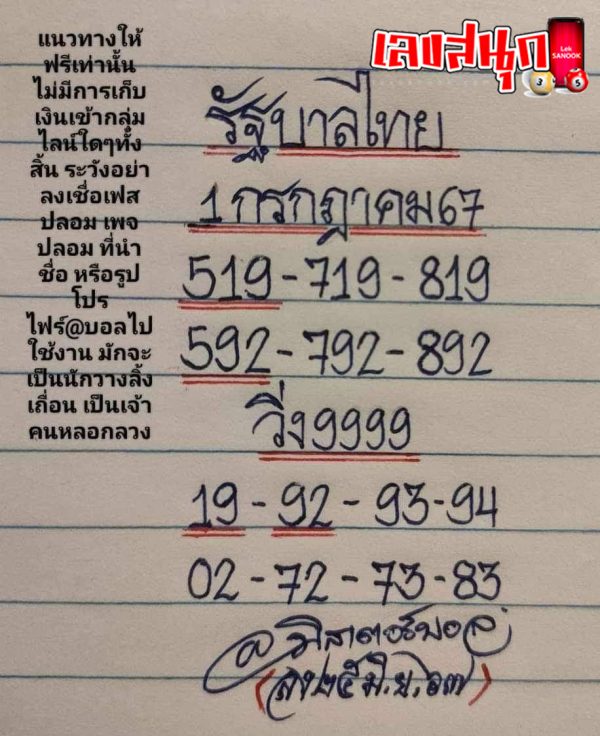 แนวทางให้
ฟรีเท่านั้น
ไม่มีการเก็บ
เงินเข้ากลุ่ม
ไลน์ใดๆทั้ง
สิ้น ระวังอย่า
ลงเชื่อเฟส
ปลอม เพจ
ปลอม ที่นำ
ชื่อ หรือรูป
โปร
ไฟร์@บอลไป
ใช้งาน มักจะ
เป็นนักวางลิ้ง
เถื่อน เป็นเจ้า
คนหลอกลวง
เลขสนุก
Lek
SANOOK
3 5
รัฐบาลไทย
1 กรกฎาคม 67
519-719-819
592-792-892
วิ่ง9999
19-92-93-94
02-72-73-83
(ลง๒๕มิ.ย.๖๗)